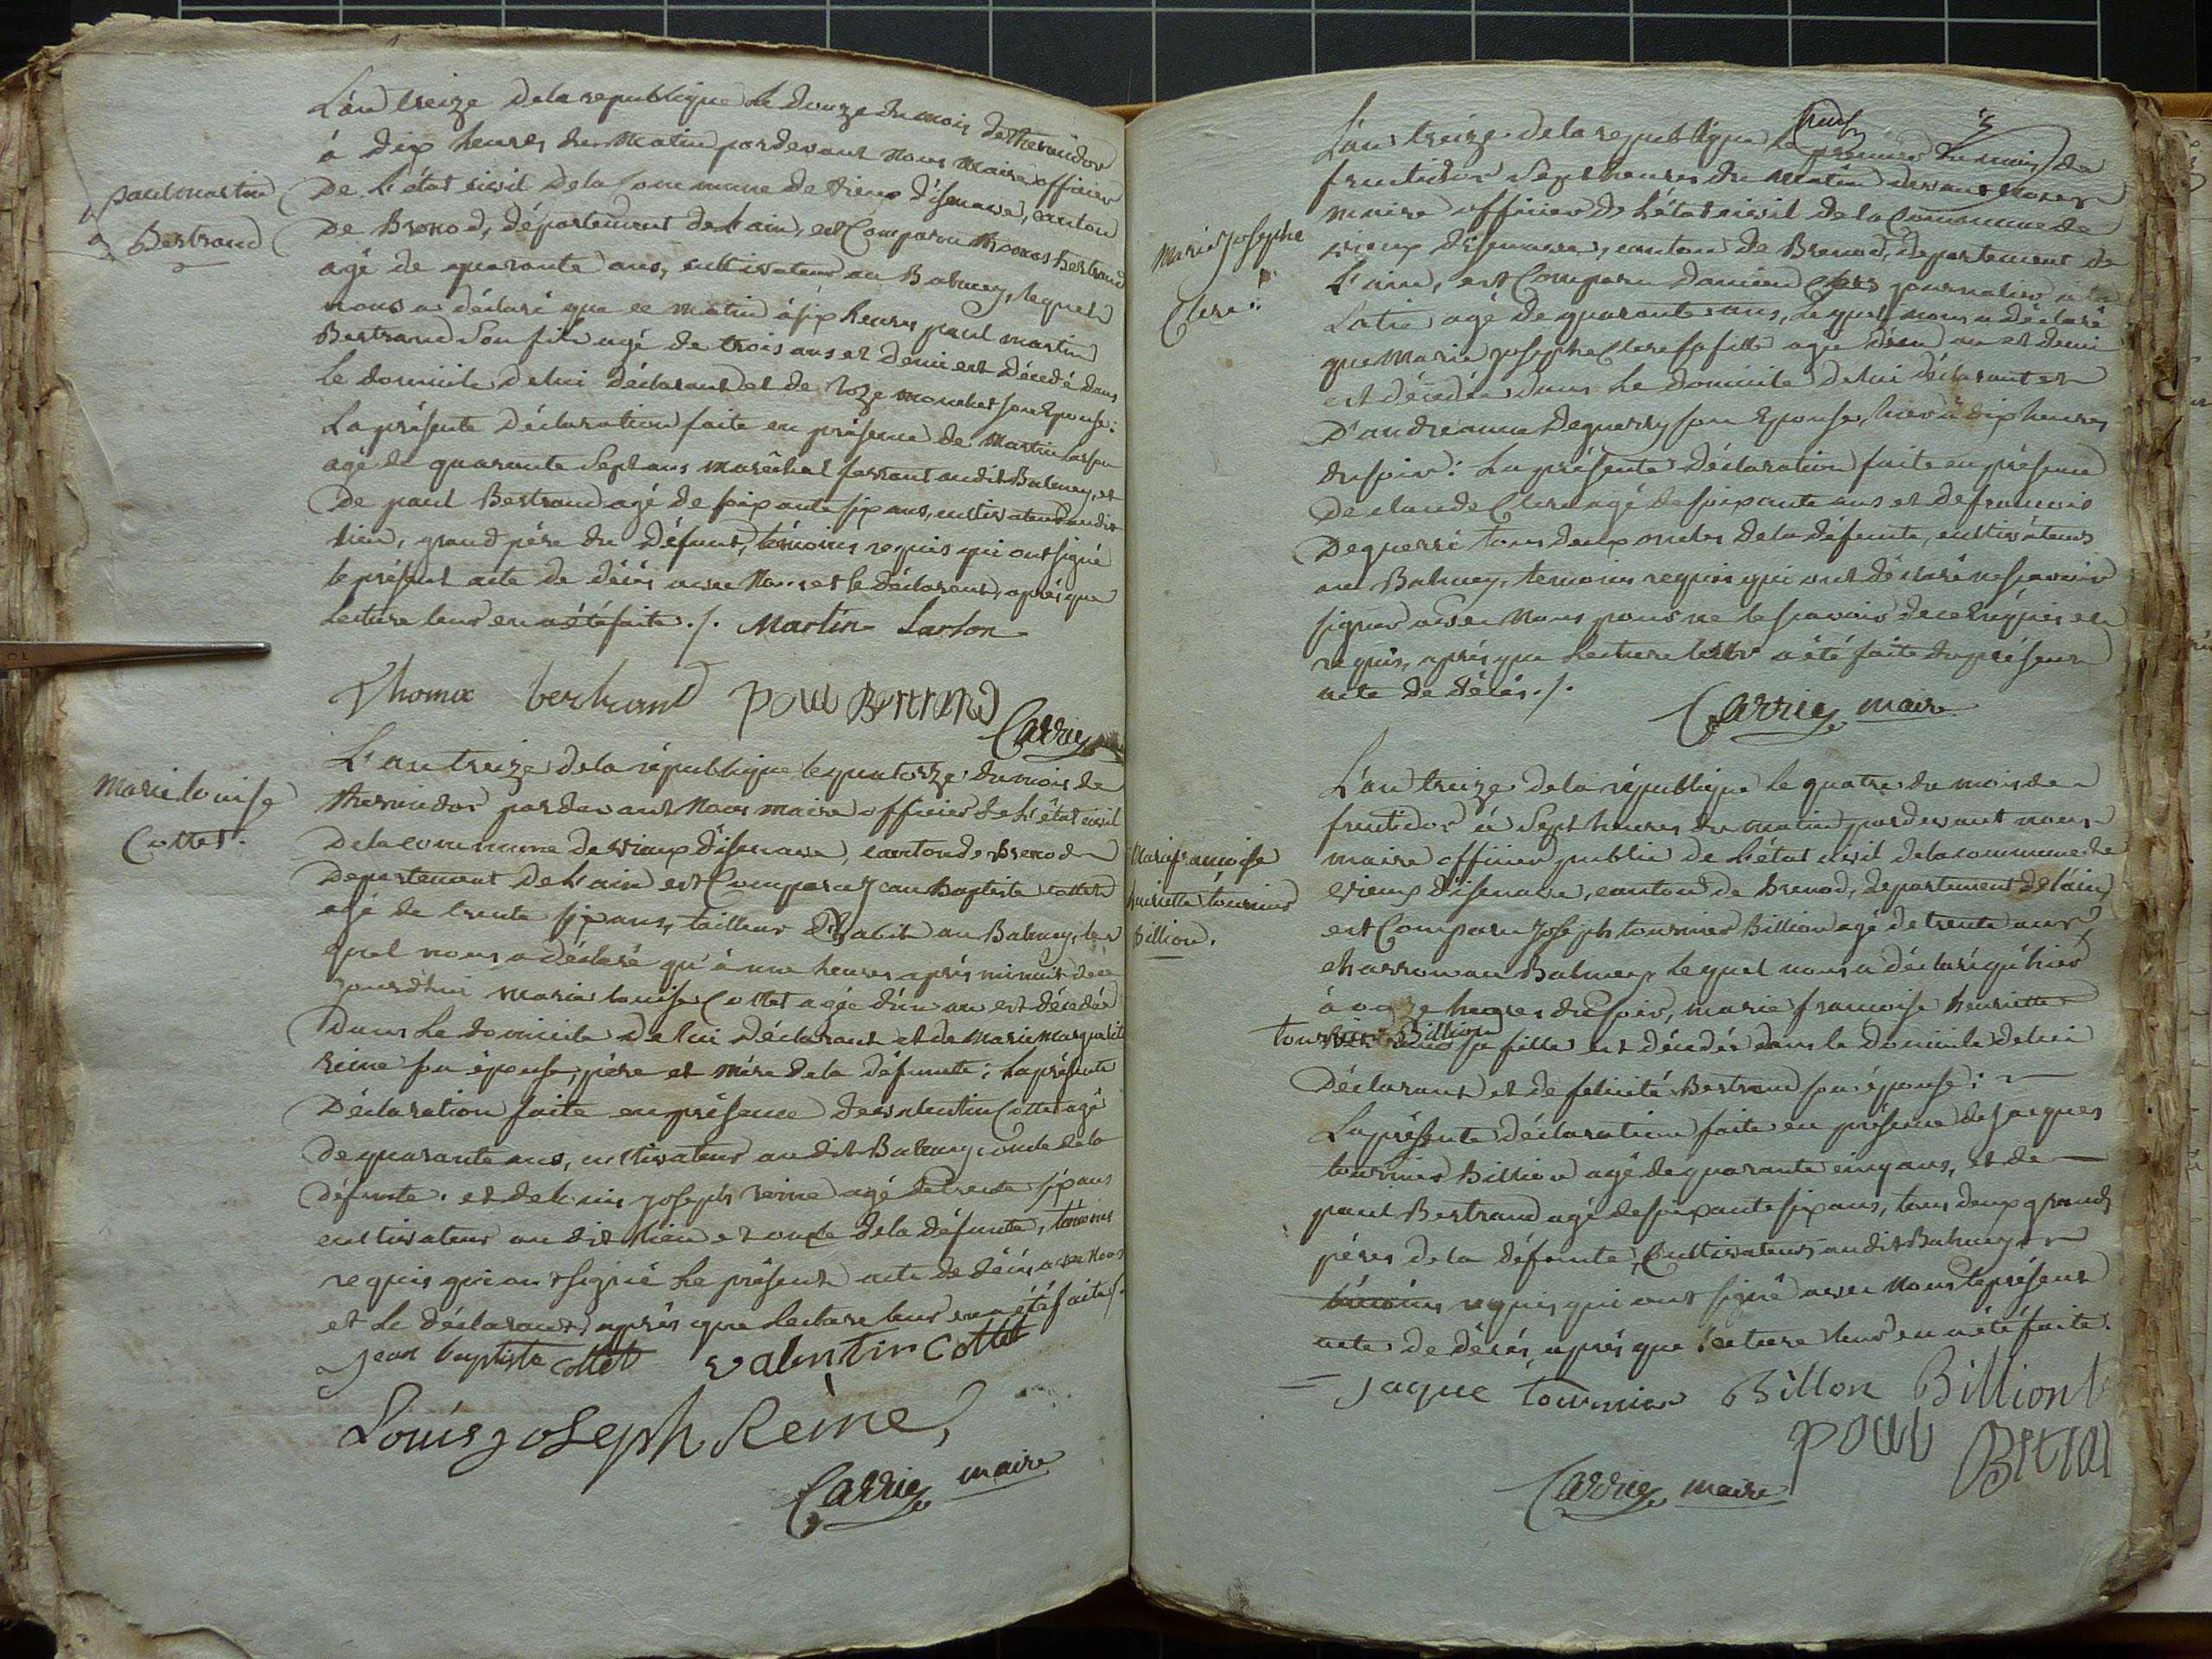 L'an treize de la republique le douze du mois de thermidor
à dix heures du matin pardevant nous maire officier
de l'état civil de la Commune de vieux d'isenave, canton
paul martin
Bertrand
de Brenod, département de l'ain, est Comparu thomas bertrand
agé de quarante ans, cultivateur au Balmey, lequel
nous a déclaré que ce matin à six heures paul martin
Bertrand son fils agé de trois ans et demi est décedé dans
le domicile de lui déclarant et de roze mouchet son Epouse:
La présente déclaration faite en présence de Martin larson
agé de quarante sept ans maréchal ferrant audit Balmey, et
de paul Bertrand agé de soixante six ans, cultivateur audit
lieu, grand père du défunt, témoins requis qui ont signé
le présent acte de décés avec Nous et le déclarant, après que
lecture leur en a été faite ./. Martin Larson
Thoma bertrand paul Bertrand
Carrier
L'an treize de la république le quatorze du mois de
Marie louise
Cottet.
thermidor pardevant Nous maire officier de l'état civil
de la commune de vieux d'isenave, canton de Brenod
département de l'ain est Comparu Jean Baptiste cottet
agé de trente six ans, tailleur d'habit au Balmey, le
quel nous a déclaré qu'à une heures après minuit de ce
jourd'hui Marie louise Cottet agée d'un an est décedée
dans le domicile de lui déclarant et de Marie Marguerite
reine son épouse, père et mère de la défunte; la présente
Déclaration faite en présence de valentin Cottet agé
de quarante ans, cultivateur audit Balmey oncle de la
défunte. et de louis joseph reine agé de trente six ans
cultivateur audit lieu et oncle de la défunte, témoins
requis qui ont signé le présent acte de décés avec nous
et le déclarant, après que lecture leur en a été faite ./.
Jean baptiste cottet valentin cottet
Louis joseph Reine
Carrier maire
L'an treize de la republique le premier du mois de
fructidor sept heures du matin devant Nous
maire officier de l'état civil de la Commune de
Marie Josephe
Clerc.
vieux d'isenave, canton de Brenod, département de
L'ain, est Comparu Damien Clerc journalier à
Latie agé de quarante ans, lequel nous a déclaré
que Marie Josephe Clerc sa fille agée d'un an et demi
est décedée dans le domicile de lui déclarant et
D'andreanne Deguerry son Epouse, hier à dix heures
du soir: La présente Déclaration faite en présence
de claude Clerc agé de soixante ans et de francois
Deguerri tous deux oncles de la défunte, cultivateurs
au Balmey, temoins requis qui ont déclaré ne scavoir
signer avec Nous pour ne le scavoir de ce enquis et
requis, après que lecture leur a été faite du présent
acte de décés ./.
Carrier maire
L'an treize de la république le quatre du mois de
fructidor à sept heures du matin pardevant nous
Marie francoise
henriette tournier
billion.
maire officier public de l'état civil de la commune de
vieux d'isenave, canton de Brenod, département de l'ain
est Comparu Joseph tournier Billion agé de trente ans,
charron au Balmey, lequel nous a déclaré qu'hier
à onze heures du soir, marie francoise henriette
tournier Billion sa fille est décedée dans le domicile de lui
Déclarant et de felicité Bertrand son épouse:
La présente déclaration faite en présence de Jacques
tournier Billion agé de quarante cinq ans, et de
paul Bertrand agé de soixante six ans, tous deux grands
pères de la défunte, Cultivateurs audit Balmey
témoins requis qui ont signé avec nous le présent
acte de décés, après que lecture leur en a été faite.
Jaque tournier Billon Billion
paul Bertra
Carrier maire